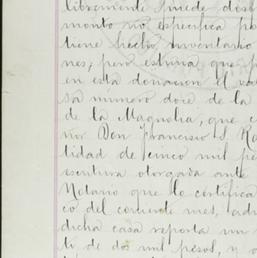 libremente puede dis
monto no especifica po
tiene hecho inventario
nes; pero estima que
en esta donacion el va
sa número doce de la
de la Magnolia, que
nir Don Francisco S. Ro
tidad de cinco mil pe
escritura otorgada ante
Notario que lo certifica
co del corriente mes, adu
dicha casa reporta un
ti de dos mil pesos, y